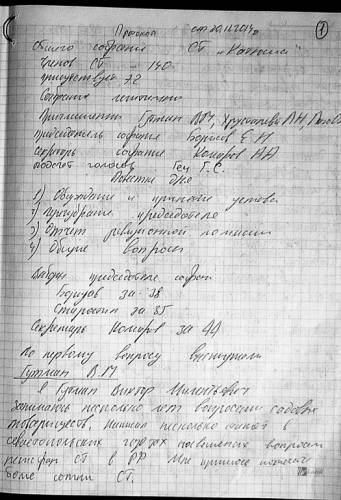 1
Протокол от
общего собрания СТ
Членов СТ - 140
присутствует 72
Собрание
Приглашены Гутман ВМ, Хрусталева
председатель собрания Борисов Е Н
секретарь собрания Комаров АН
подсчет голосов Г. С.
Повестка дня
1) Обсуждение и принятие устава
2) председателя
3) Отчет ревизионной комиссии
4) Общие вопросы
председателя собрания
за - 38
Старостин за 35
Секретарь Комаров за 44
По первому вопросу выступили
Гутман ВМ
я Гутман Виктор
занимаюсь несколько лет вопросами садовых
товариществ, написал несколько в
севастопольских газетах посвященых вопросам
СТ в РФ. Мне пришлось
более сотни СТ.